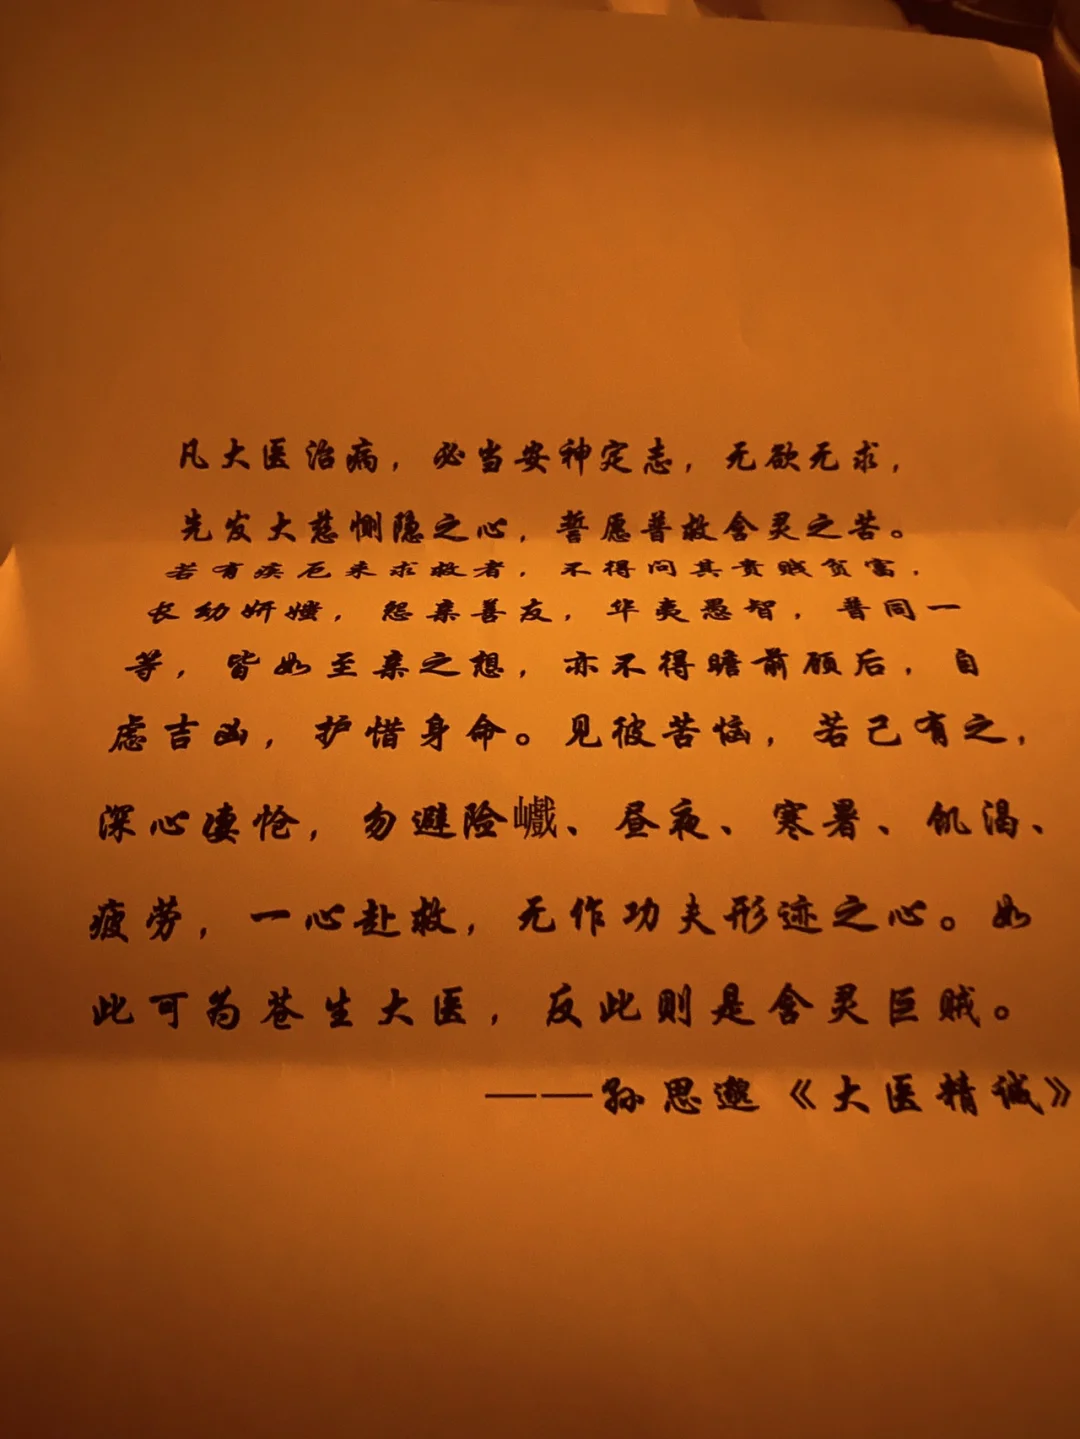 凡大医治病，必当安神定志，无欲无求，
先发大慈恻隐之心，誓愿普救含灵之苦。
若有疾厄来求救者，不得问其贵贱贫富，
长幼妍媸，怨亲善友，华夷愚智，普同一
等，皆如至亲之想，亦不得瞻前顾后，自
虑吉凶，护惜身命。见彼苦恼，若己有之，
深心凄怆，勿避险巇、昼夜、寒暑、饥渴、
疲劳，一心赴救，无作功夫形迹之心。如
此可为苍生大医，反此则是含灵巨贼。
——孙思邈《大医精诚》